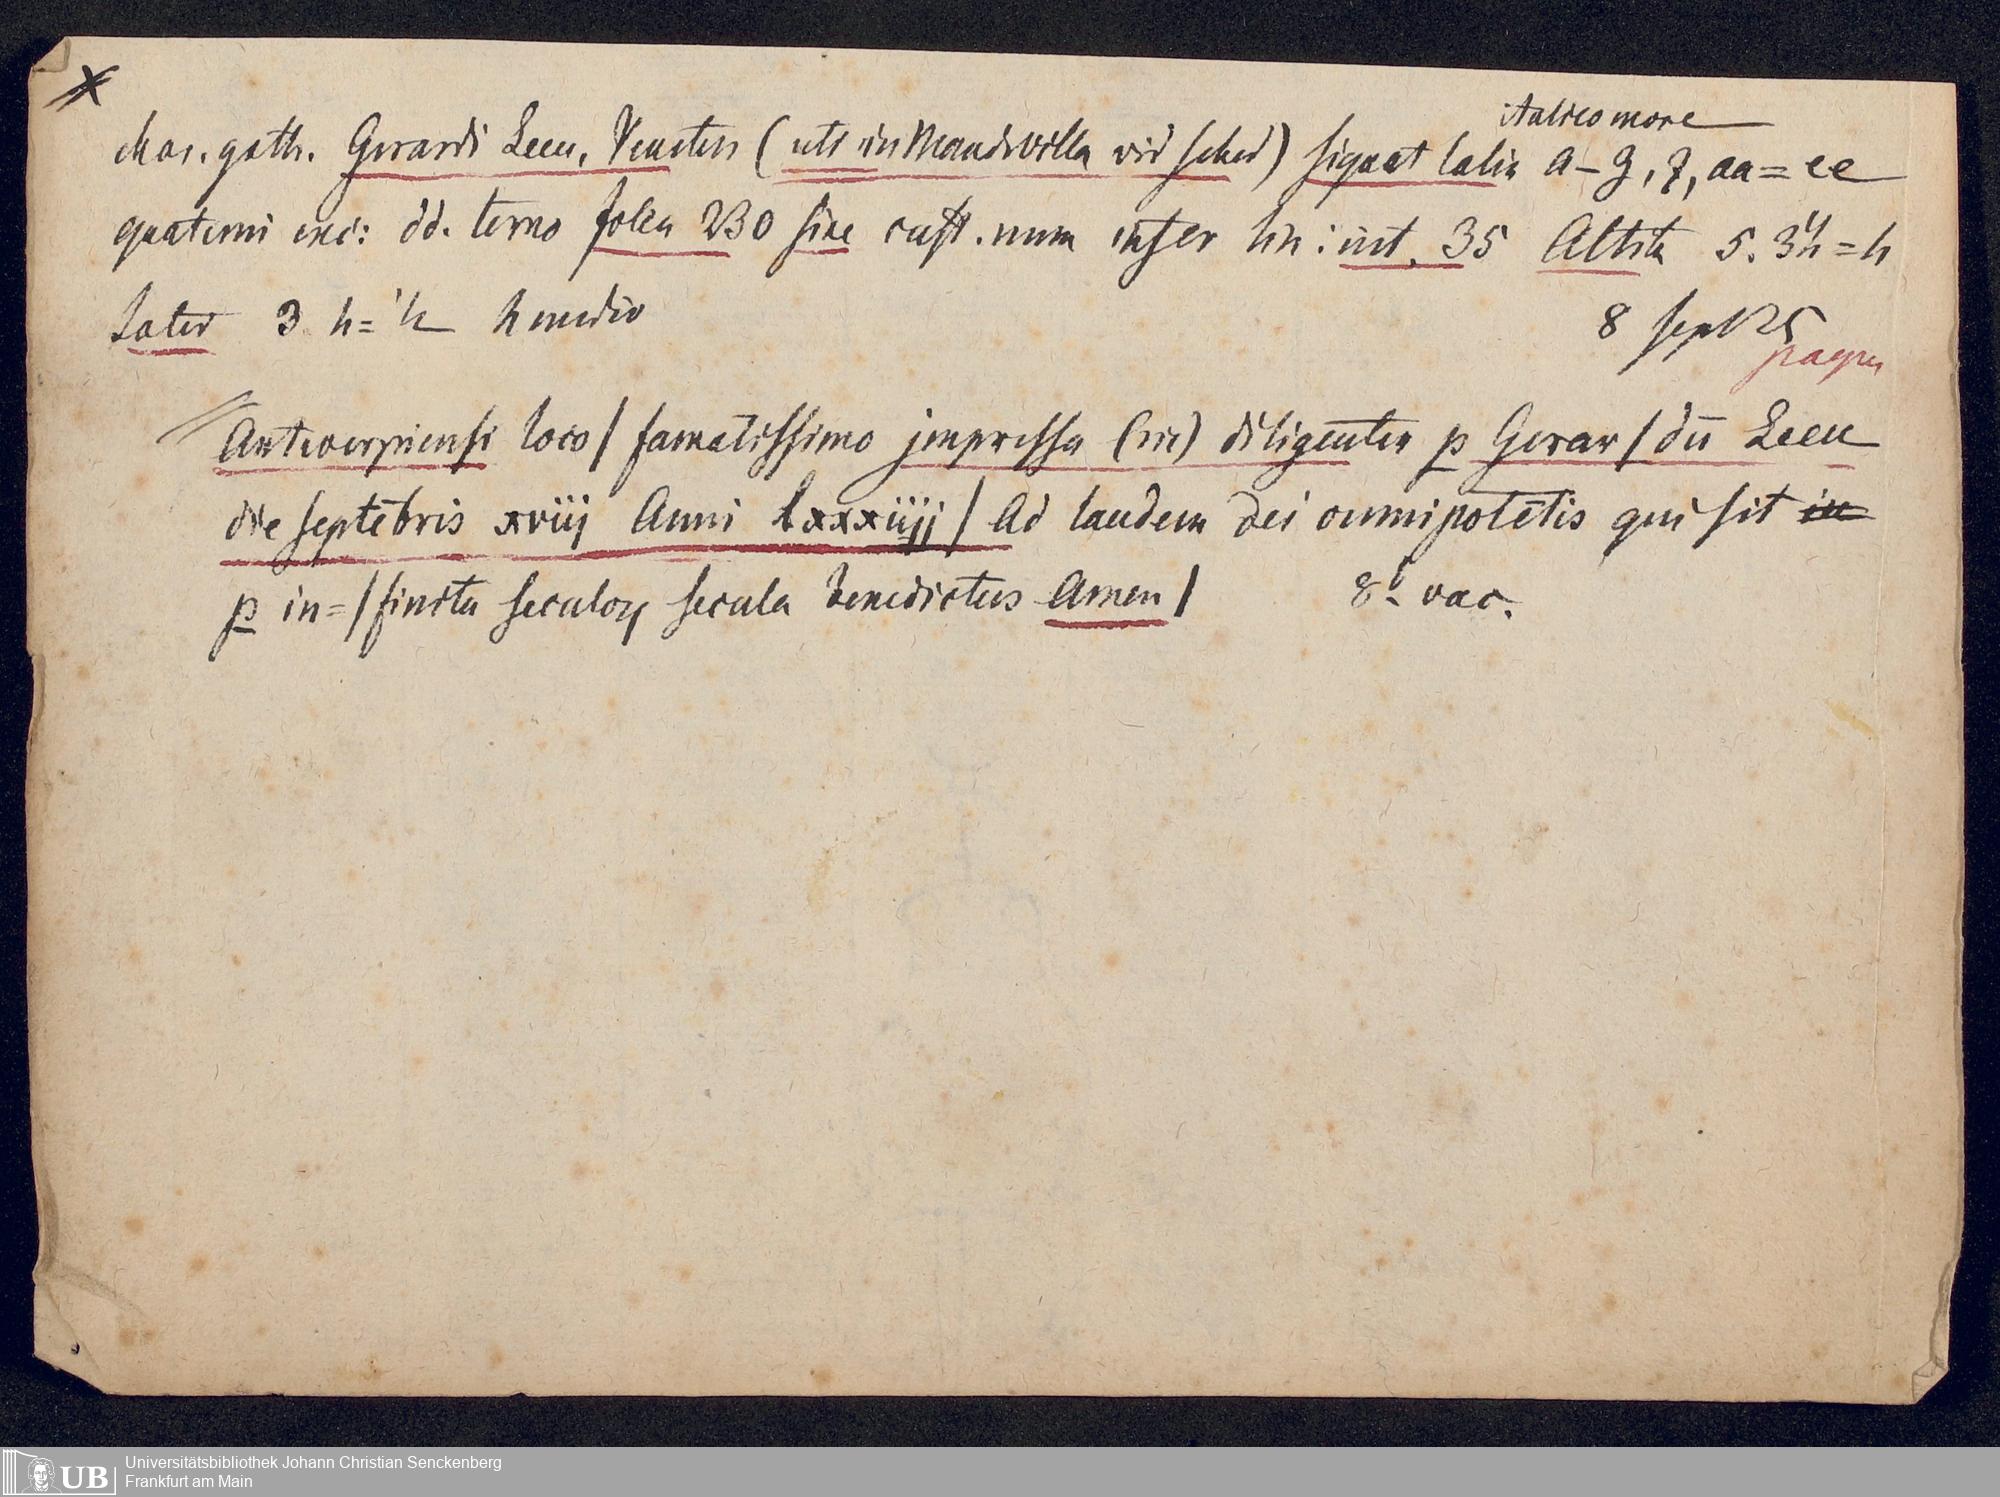 italico more
char. goth. Gerardi Leeu, Venetus (uti in Mandevilla vid sched) signat talia a–z, ꝫ, aa=ee
quaterni exc: dd. terno folia 230 sine cust. num inser lin: int. 35 Altit 5. 3'h = h
Later 3 h='h h medio 8 sept 25
pagin
Antwerpiensi loco / famatissimo jmpressa (sic) diligenter p Gerar / dū Leeu
die septēbris xviij Anni Lxxxiiij / Ad laudem dei omnipotētis qui sit in
p in= / finita seculoꝝ secula benedictus Amen / 8b vac.
Universitätsbibliothek Johann Christian Senckenberg
UB Frankfurt am Main